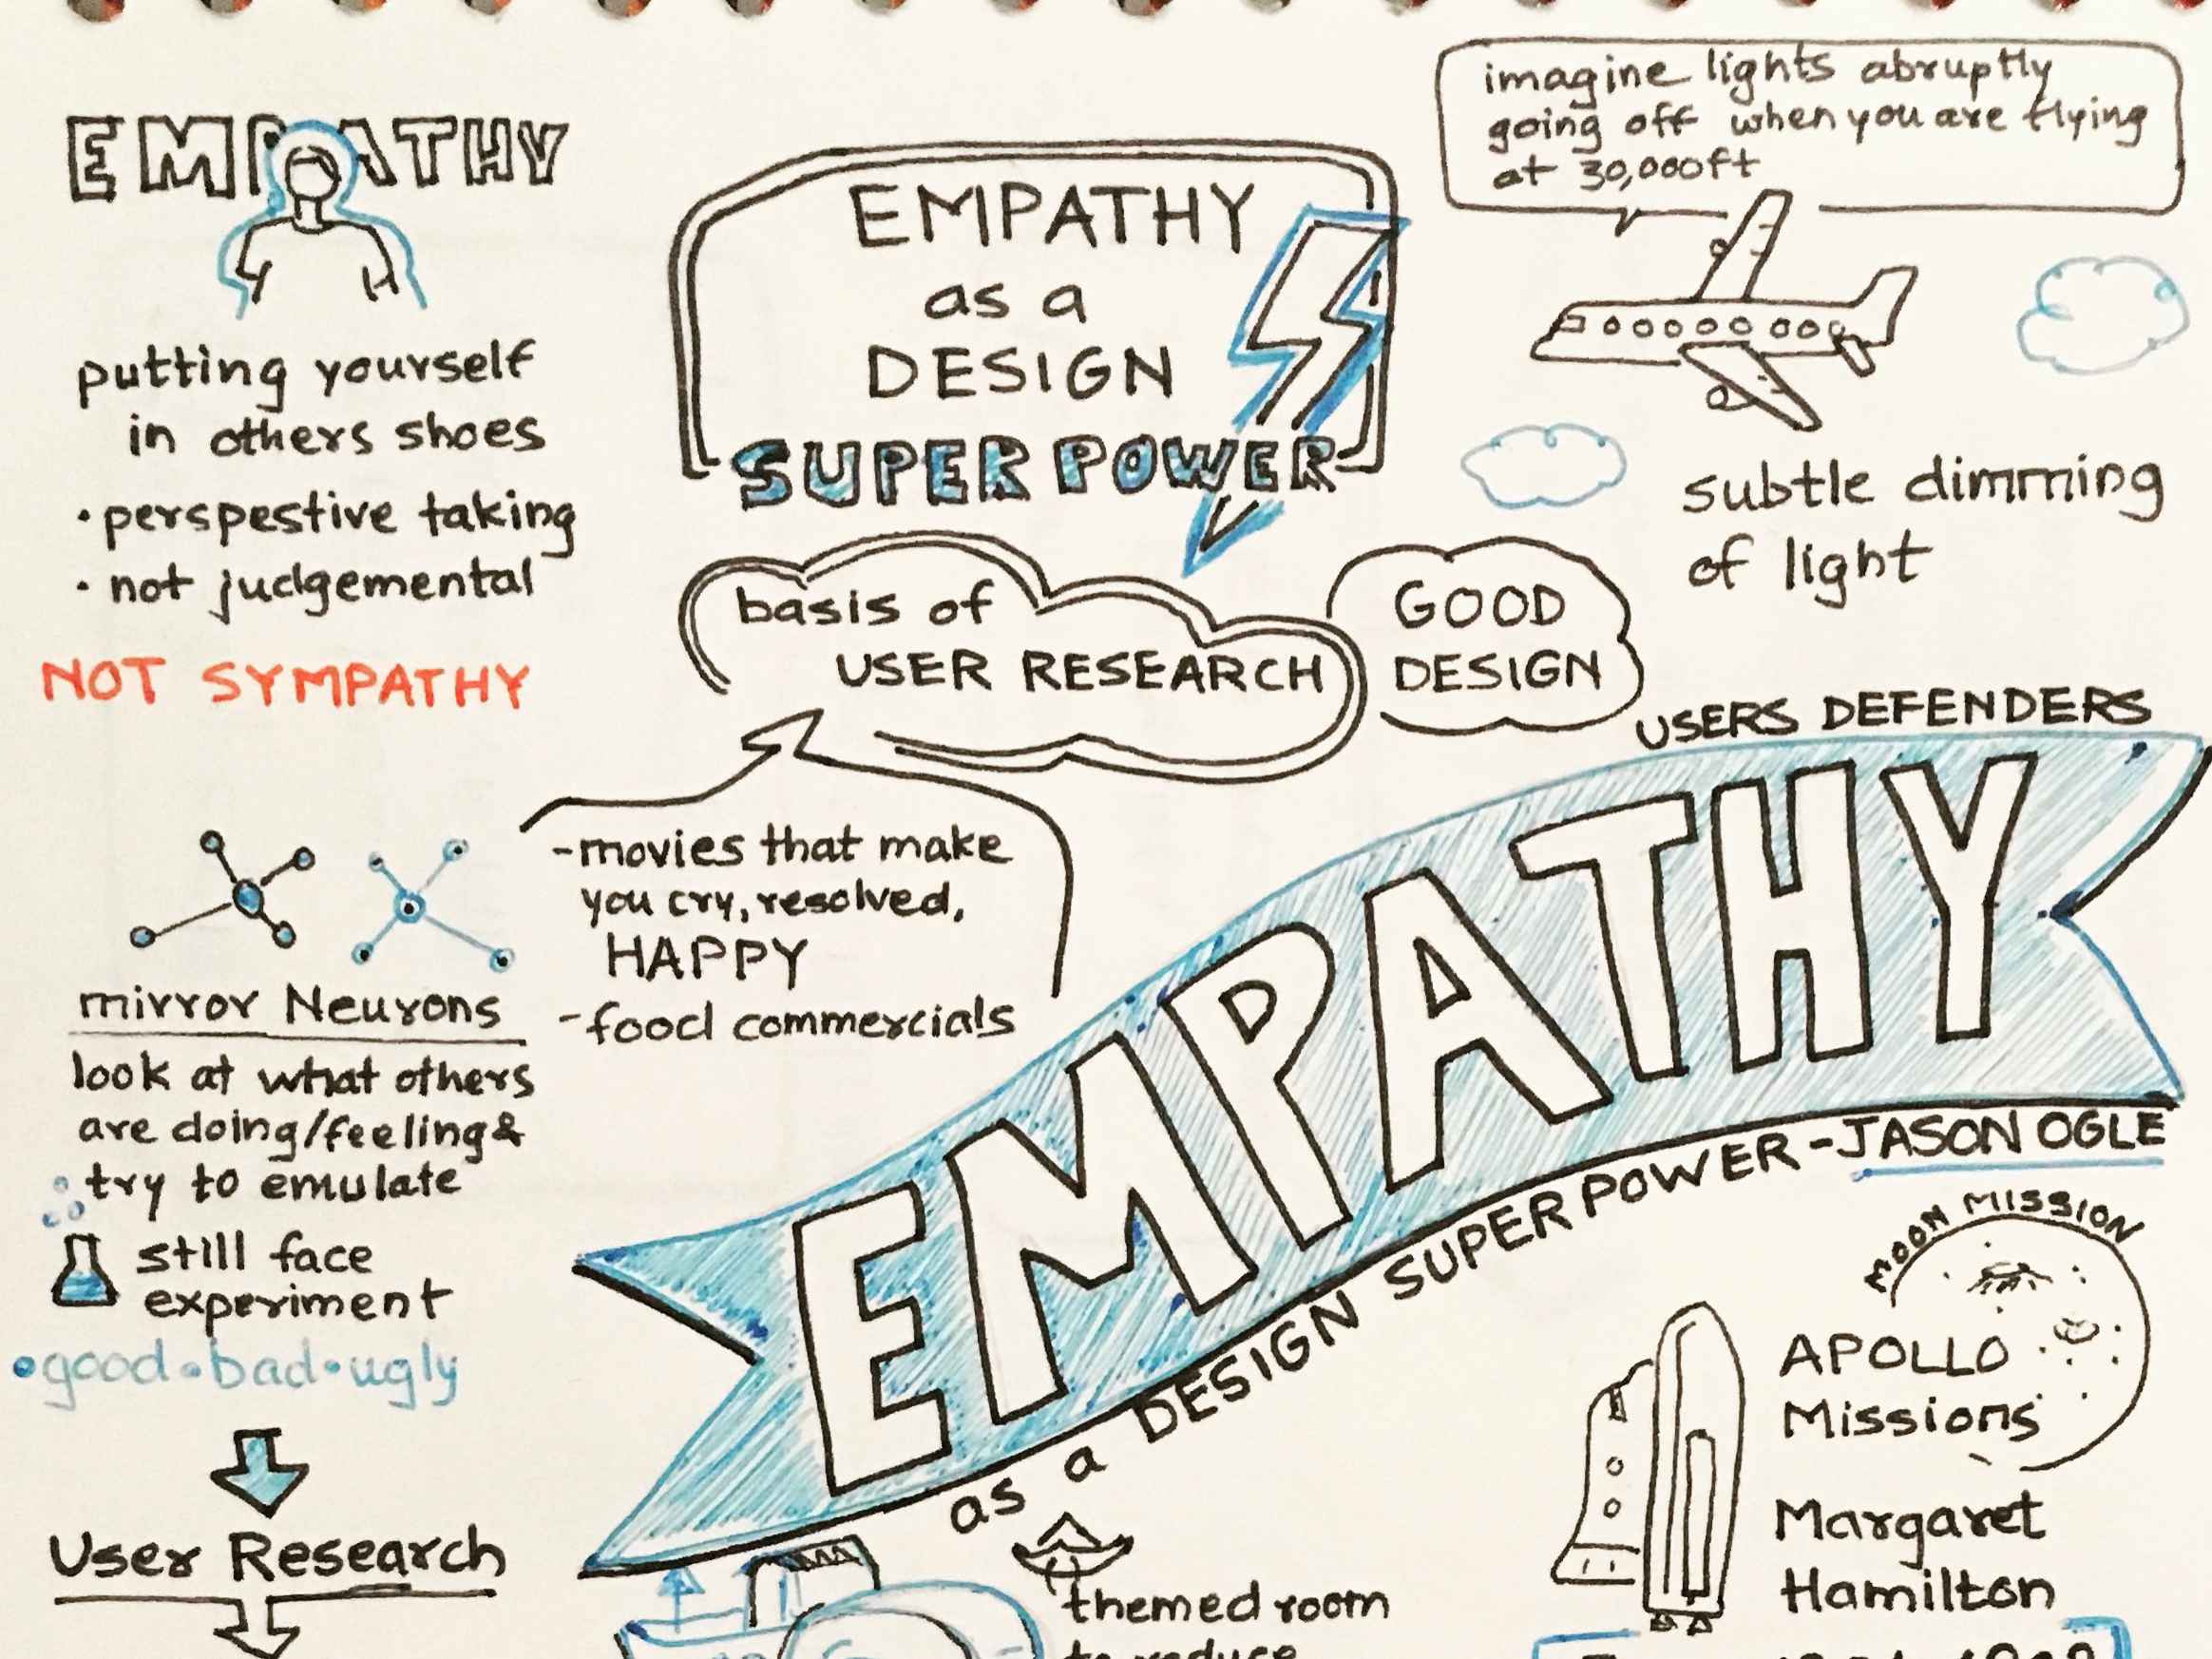 EMPATHY
putting yourself
in others shoes
• perspestive taking
• not judgemental
NOT SYMPATHY
mirror Neurons
look at what others
are doing/feeling &
try to emulate
still face
experiment
• good • bad • ugly
User Research
EMPATHY
as a
DESIGN
SUPER POWER
basis of
USER RESEARCH
GOOD
DESIGN
- movies that make
you cry, resolved,
HAPPY
- food commercials
imagine lights abruptly
going off when you are flying
at 30,000ft
subtle dimming
of light
USERS DEFENDERS
EMPATHY
as a DESIGN SUPER POWER - JASON OGLE
MOON MISSION
APOLLO
Missions
Margaret
Hamilton
themed room
to reduce